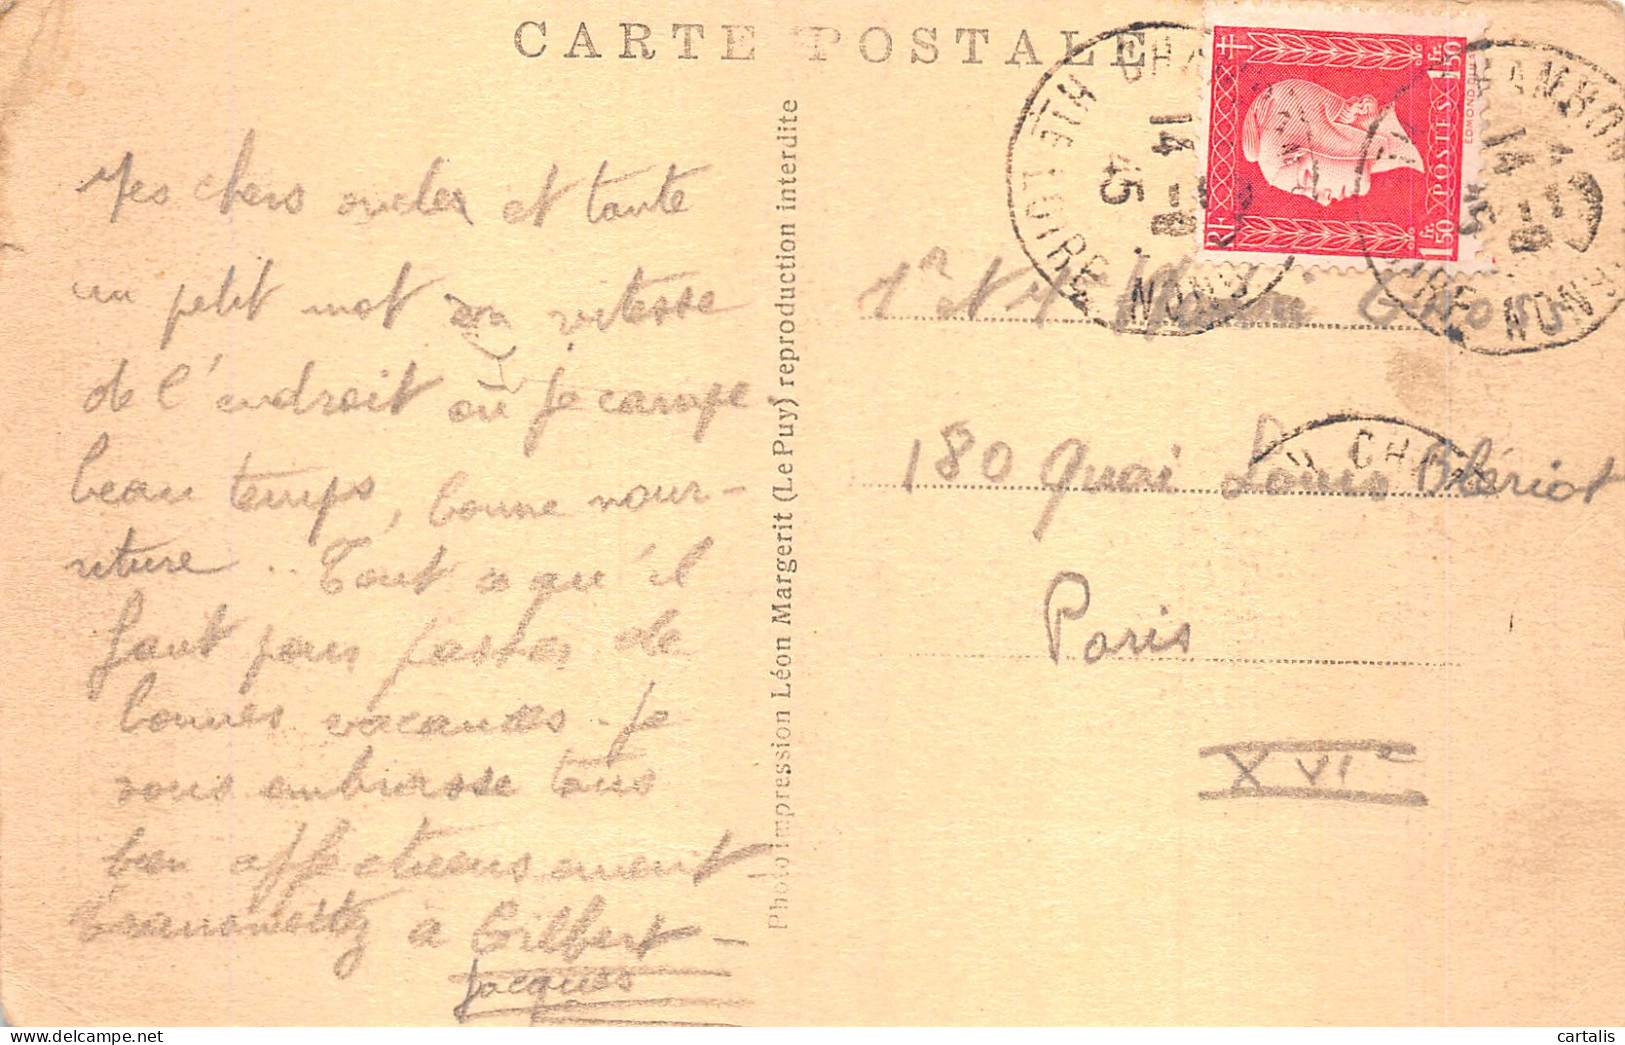 CARTE POSTALE
Mes chers oncles et tante
un petit mot en vitesse
de l'endroit où je campe.
beau temps, bonne nour-
riture .. Tout ce qu'il
faut pour passer de
bonnes vacances. Je
vous embrasse tous
bien affectueusement
Transmettez à Gilbert -
Jacques
Photo impression Léon Margerit (Le Puy) reproduction interdite
CHA
14 -8
45
HTE LOIRE
RF
1 Fr. 50
POSTES
1 Fr. 50
EDMOND
CHAMBON
14 -8
45
LOIRE
Mr et Mme
180 Quai Louis Blériot
CHA
Paris
XVIe
cartalis